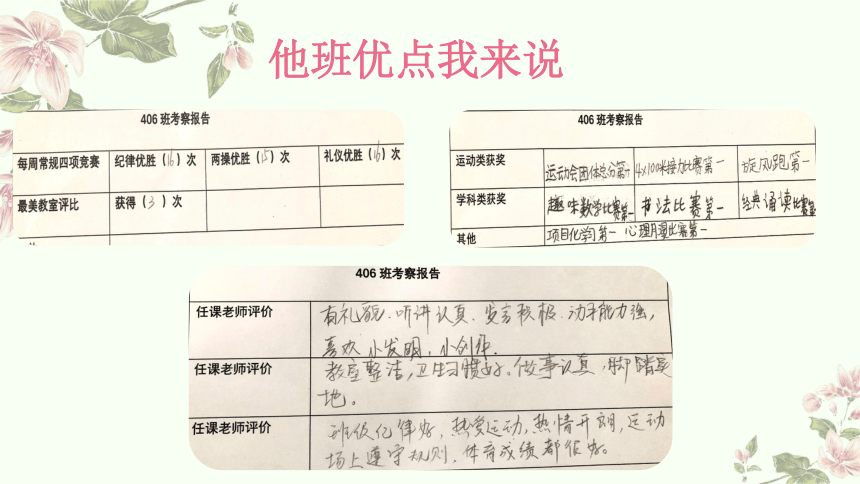 他班优点我来说
406班考察报告
每周常规四项竞赛 纪律优胜(16)次 两操优胜(15)次 礼仪优胜(16)次
最美教室评比 获得(3)次
406班考察报告
运动类获奖 运动会团体总分第一 4×100米接力比赛第一 旋风跑第一
学科类获奖 趣味数学比赛第一 书法比赛第一 经典诵读比赛第
其他 项目化学习第一 心理月漫比赛第一
406班考察报告
任课老师评价 有礼貌.听讲认真.发言积极.动手能力强,
喜欢小发明,小创作.
任课老师评价 教室整洁,卫生习惯好。做事认真,脚踏实
地。
任课老师评价 班级纪律好,热爱运动,热情开朗,运动
场上遵守规则.体育成绩都很好。